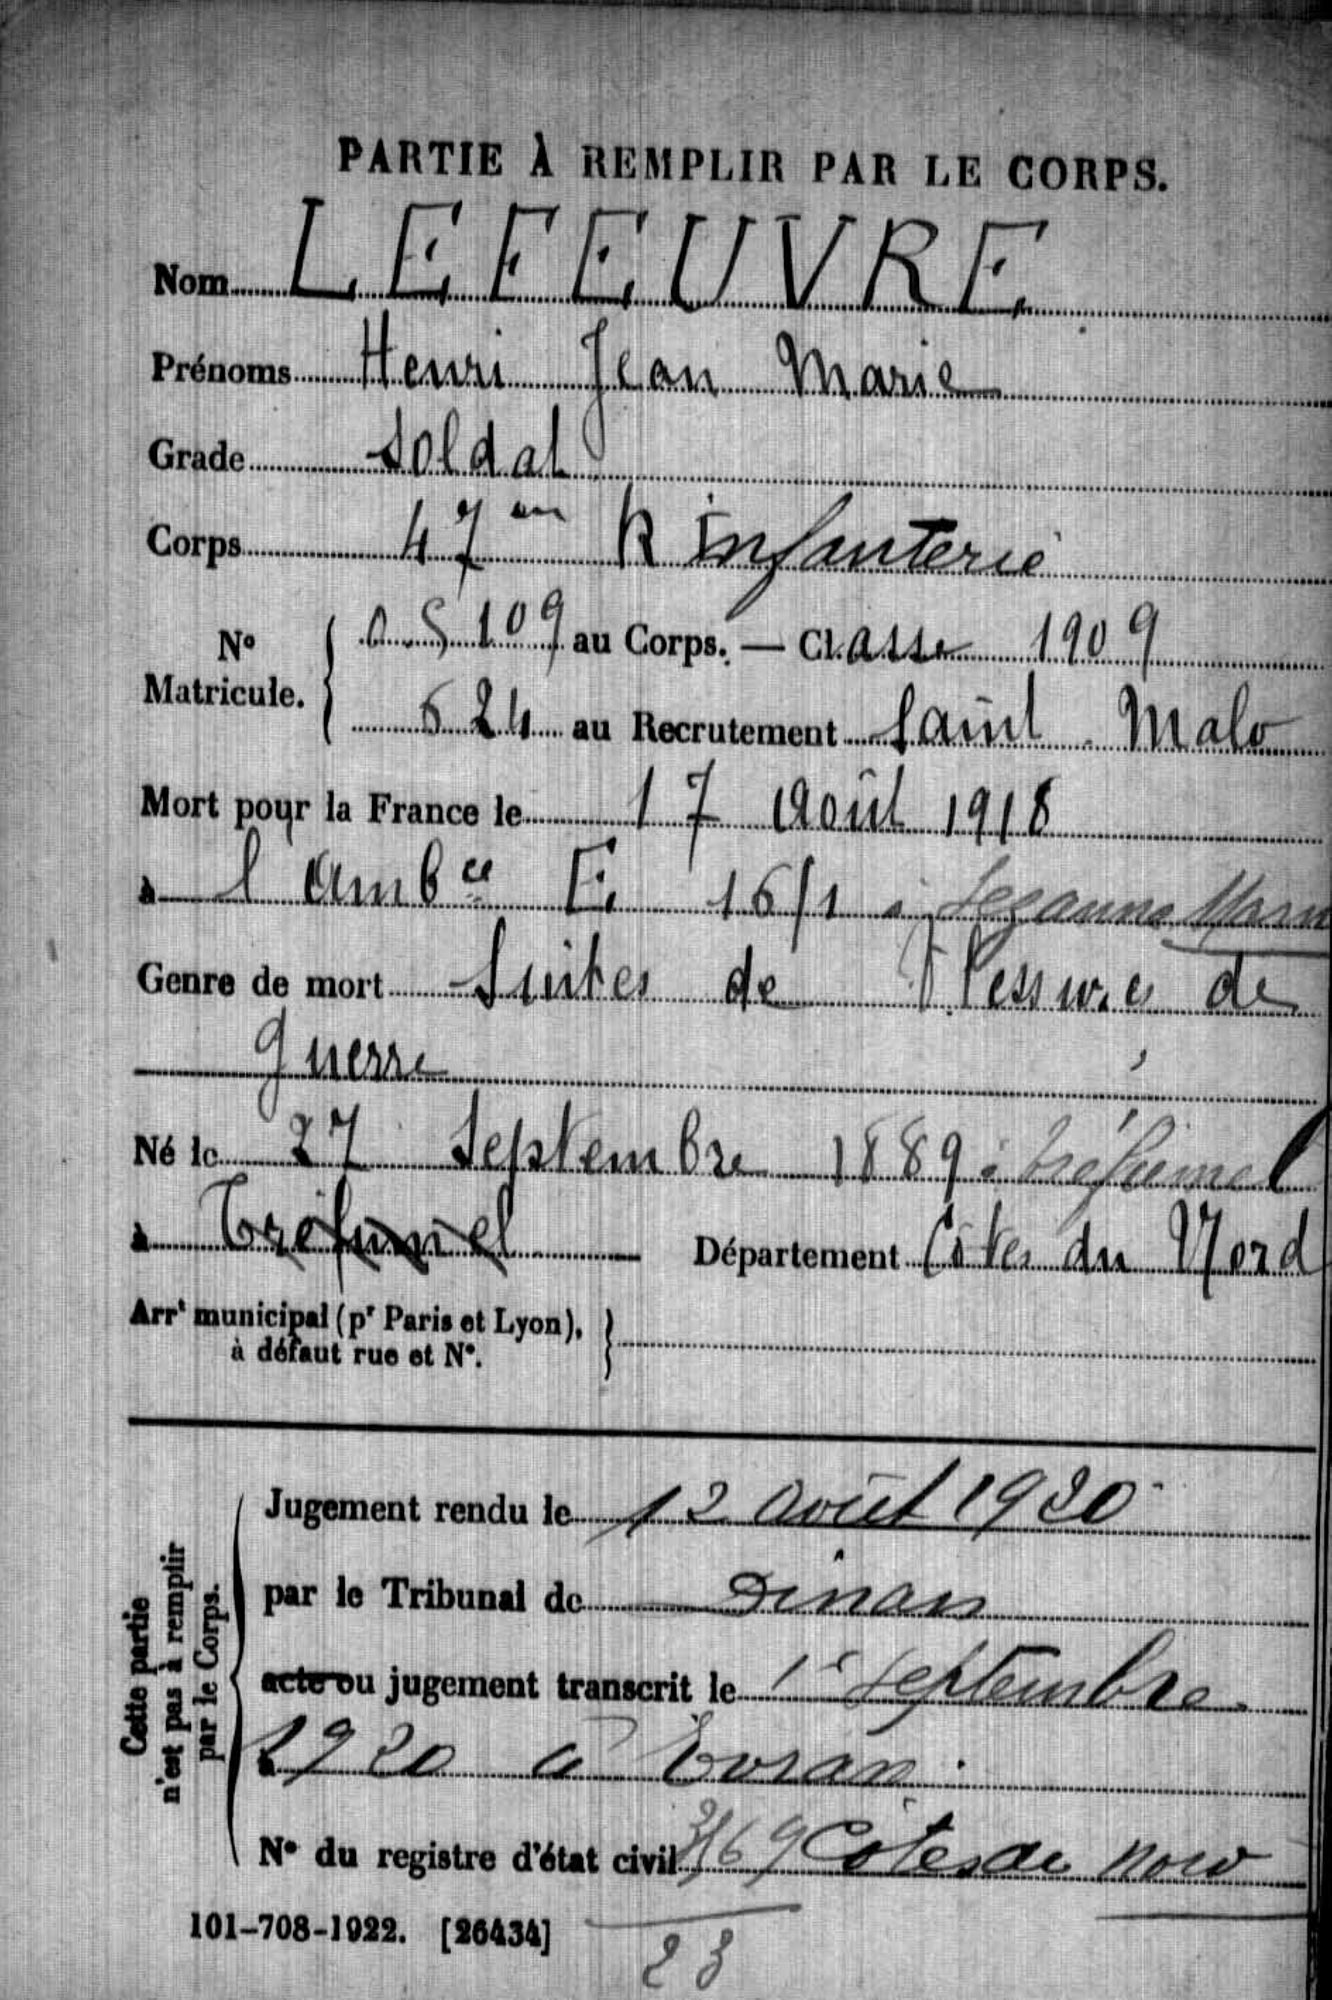 PARTIE À REMPLIR PAR LE CORPS.
Nom LEFEUVRE
Prénoms Henri Jean Marie
Grade Soldat
Corps 47me R Infanterie
N° Matricule. { 0.5109 au Corps. — Classe 1909
624 au Recrutement Saint Malo
Mort pour la France le 17 Août 1918
à l'Ambce E 16/1 à Sezanne Marne
Genre de mort Suites de Blessures de
guerre
Né le 27 Septembre 1889 à Tréfumel
à Tréfumel Département Côtes du Nord
Arrt municipal (pr Paris et Lyon),
à défaut rue et N°.
Cette partie
n'est pas à remplir
par le Corps.
Jugement rendu le 12 Août 1920
par le Tribunal de Dinan
acte ou jugement transcrit le 1er Septembre
à 1920 à Evran.
N° du registre d'état civil Côtes du Nord
101-708-1922. [26434]
23